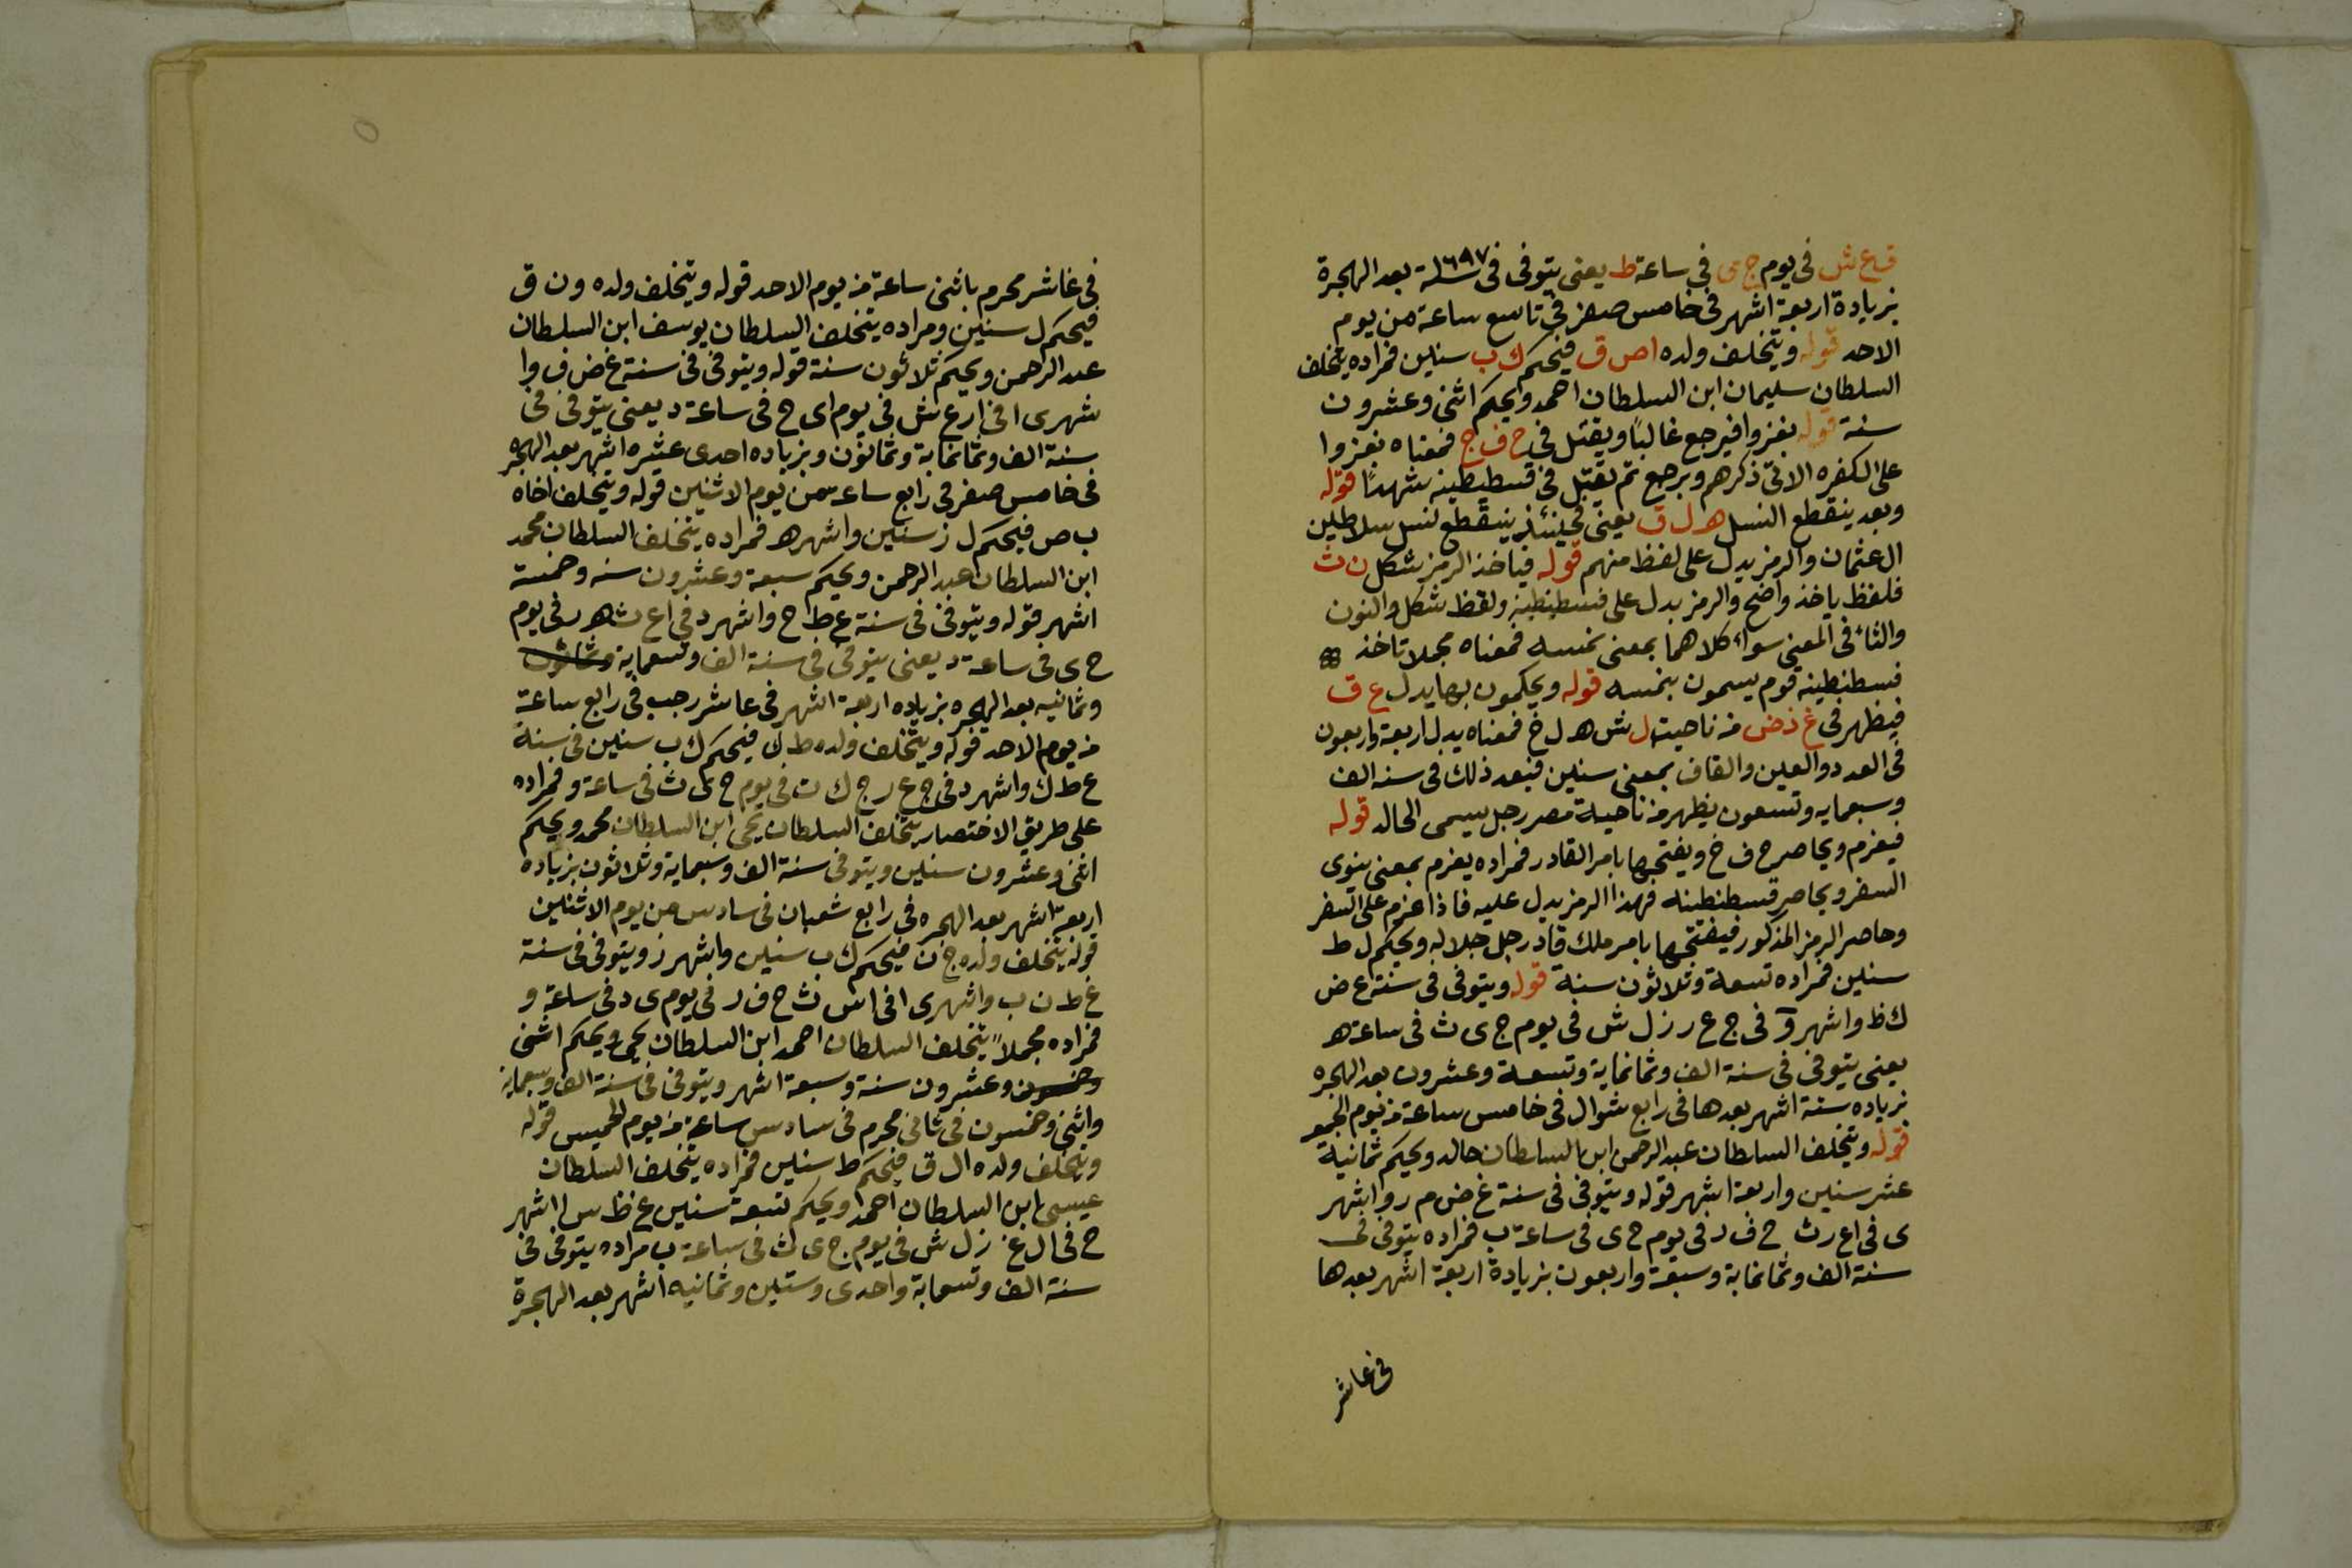 ق ع ش فى يوم ج ى فى ساعة ط يعنى يتوفى فى سنة ١٦٩٧ بعد الهجرة
بزيادة اربعة اشهر فى خامس صفر فى تاسع ساعة من يوم
الاحد قوله ويتخلف ولده اص ق فيحكم ك ب سنين فمراده يتخلف
السلطان سليمان ابن السلطان احمد ويحكم اثنى وعشرون
سنة قوله يغزوا فيرجع غالبًا ويقتل فى ح ف ج فمعناه يغزوا
على الكفره الاتى ذكرهم ويرجع ثم يقتل فى قسطنطينه شهيدًا قوله
وبعد ينقطع النسل ه ل ق يعنى فحينئذ ينقطع نسل سلاطين
ال عثمان والرمز يدل على لفظ منهم قوله فياخذ الرمز شكل ن ث
فلفظ ياخذ واضح والرمز يدل على قسطنطينه ولفظ شكل والنون
والثاء فى المعنى سواء كلاهما بمعنى نمسه فمعناه مجملا تاخذ
قسطنطينه قوم يسمون بنمسه قوله ويحكمون بها يدل ع ق
فيظهر فى غ ذ ض من ناحيت ل ش ه ل خ فمعناه يدل اربعة واربعون
فى العدد والعين والقاف بمعنى سنين فبعد ذلك فى سنه الف
وسبعمايه وتسعون يظهر من ناحية مصر رجل يسمى الحالد قوله
فيعزم ويحاصر ح ف خ ويفتحها بامر القادر فمراده يعزم بمعنى ينوى
السفر ويحاصر قسطنطينه فهذا الرمز يدل عليه فاذا عزم على السفر
وحاصر الرمز المذكور فيفتحها بامر ملك قادر جل جلاله ويحكم ل ط
سنين فمراده تسعة وثلاثون سنة قوله ويتوفى فى سنة ع ض
ك ظ واشهر و فى ج ع ر ز ل ش فى يوم ج ى ث فى ساعة ه
يعنى يتوفى فى سنة الف وثمانماية وتسعة وعشرون بعد الهجره
بزياده ستة اشهر بعدها فى رابع شوال فى خامس ساعة من يوم الجمعه
قوله ويتخلف السلطان عبد الرحمن ابن السلطان حالد ويحكم ثمانية
عشر سنين واربعة اشهر قوله ويتوفى فى سنة غ ض م ر واشهر
ى فى اع ر ث ح ف د فى يوم ح ى فى ساعة ب فمراده يتوفى فى
سنة الف وثمانماية وسبعة واربعون بزيادة اربعة اشهر بعدها
فى عاشر
فى عاشر محرم باثنى ساعة من يوم الاحد قوله ويتخلف ولده و ن ق
فيحكم ل سنين ومراده يتخلف السلطان يوسف ابن السلطان
عبد الرحمن ويحكم ثلاثون سنة قوله ويتوفى فى سنة غ ض ف وا
شهرى ا فى ا ر ع ش فى يوم اى ح فى ساعة د يعنى يتوفى فى
سنة الف وثمانماية وثمانون وبزياده احدى عشره اشهر بعد الهجره
فى خامس صفر فى رابع ساعه من يوم الاثنين قوله ويتخلف اخاه
ب ص فيحكم ل ز سنين واشهر ه فمراده يتخلف السلطان محمد
ابن السلطان عبد الرحمن ويحكم سبعة وعشرون سنه وخمسة
اشهر قوله ويتوفى فى سنة ع ط ح واشهر د فى اع ث ه ر فى يوم
ح ى فى ساعة د يعنى يتوفى فى سنة الف وتسعماية وثمانون
وثمانيه بعد الهجره بزياده اربعة اشهر فى عاشر رجب فى رابع ساعة
من يوم الاحد قوله ويتخلف ولده ط ك فيحكم ك ب سنين فى سنة
ع ط ك واشهر د فى ج ع ر ج ك ت فى يوم ح ى ث فى ساعة و فمراده
على طريق الاختصار يتخلف السلطان يحيى ابن السلطان محمد ويحكم
اثنى وعشرون سنين ويتوفى سنة الف وسبعماية وثلاثون بزياده
اربعة اشهر بعد الهجره فى رابع شعبان فى سادس من يوم الاثنين
قوله يتخلف ولده ج ن فيحكم ك ب سنين واشهر ز ويتوفى فى سنة
غ ط ن ب واشهرى ا فى اس ث ح ف ر فى يوم ى د فى ساعة و
فمراده مجملاً يتخلف السلطان احمد ابن السلطان يحيى ويحكم اثنى
وخمسون وعشرون سنة وسبعة اشهر ويتوفى فى سنة الف وسبعمايه
واثنى وخمسون فى ثانى محرم فى سادس ساعة من يوم الخميس قوله
ويتخلف ولده ال ق فيحكم ط سنين فمراده يتخلف السلطان
عيسى ابن السلطان احمد ويحكم تسعة سنين ع ظ س ا اشهر
ح فى ال غ ز ل ش فى يوم ج ى ث فى ساعة ب مراده يتوفى فى
سنة الف وتسعماية واحدى وستين وثمانيه اشهر بعد الهجرة